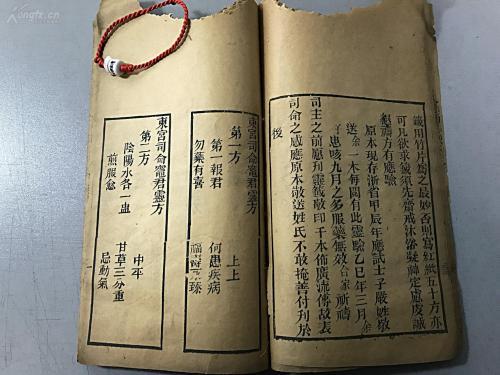 籤用竹片為之最妙否則寫紅紙五十方亦
可凡欲求籤須先齋戒沐浴凝神定慮虔誠
懇禱方有應驗
原本現存浙省甲辰年應試士子嚴姓敬
送余一本每閱有此靈驗乙巳年三月余
患咳九月之多服藥無效合家祈禱
司主之前愿列靈籤敬印千本佈廣流傳故表
司命之感應原本敬送姓氏不敢掩善付刋於
後
東宮司命竈君靈方
第一方 上上
第一報君 何患疾病
勿藥有喜 福壽臻
東宮司命竈君靈方
第二方 中平
陰陽水各一盅 甘草三分重
煎服愈 忌動氣
kongfz.cn